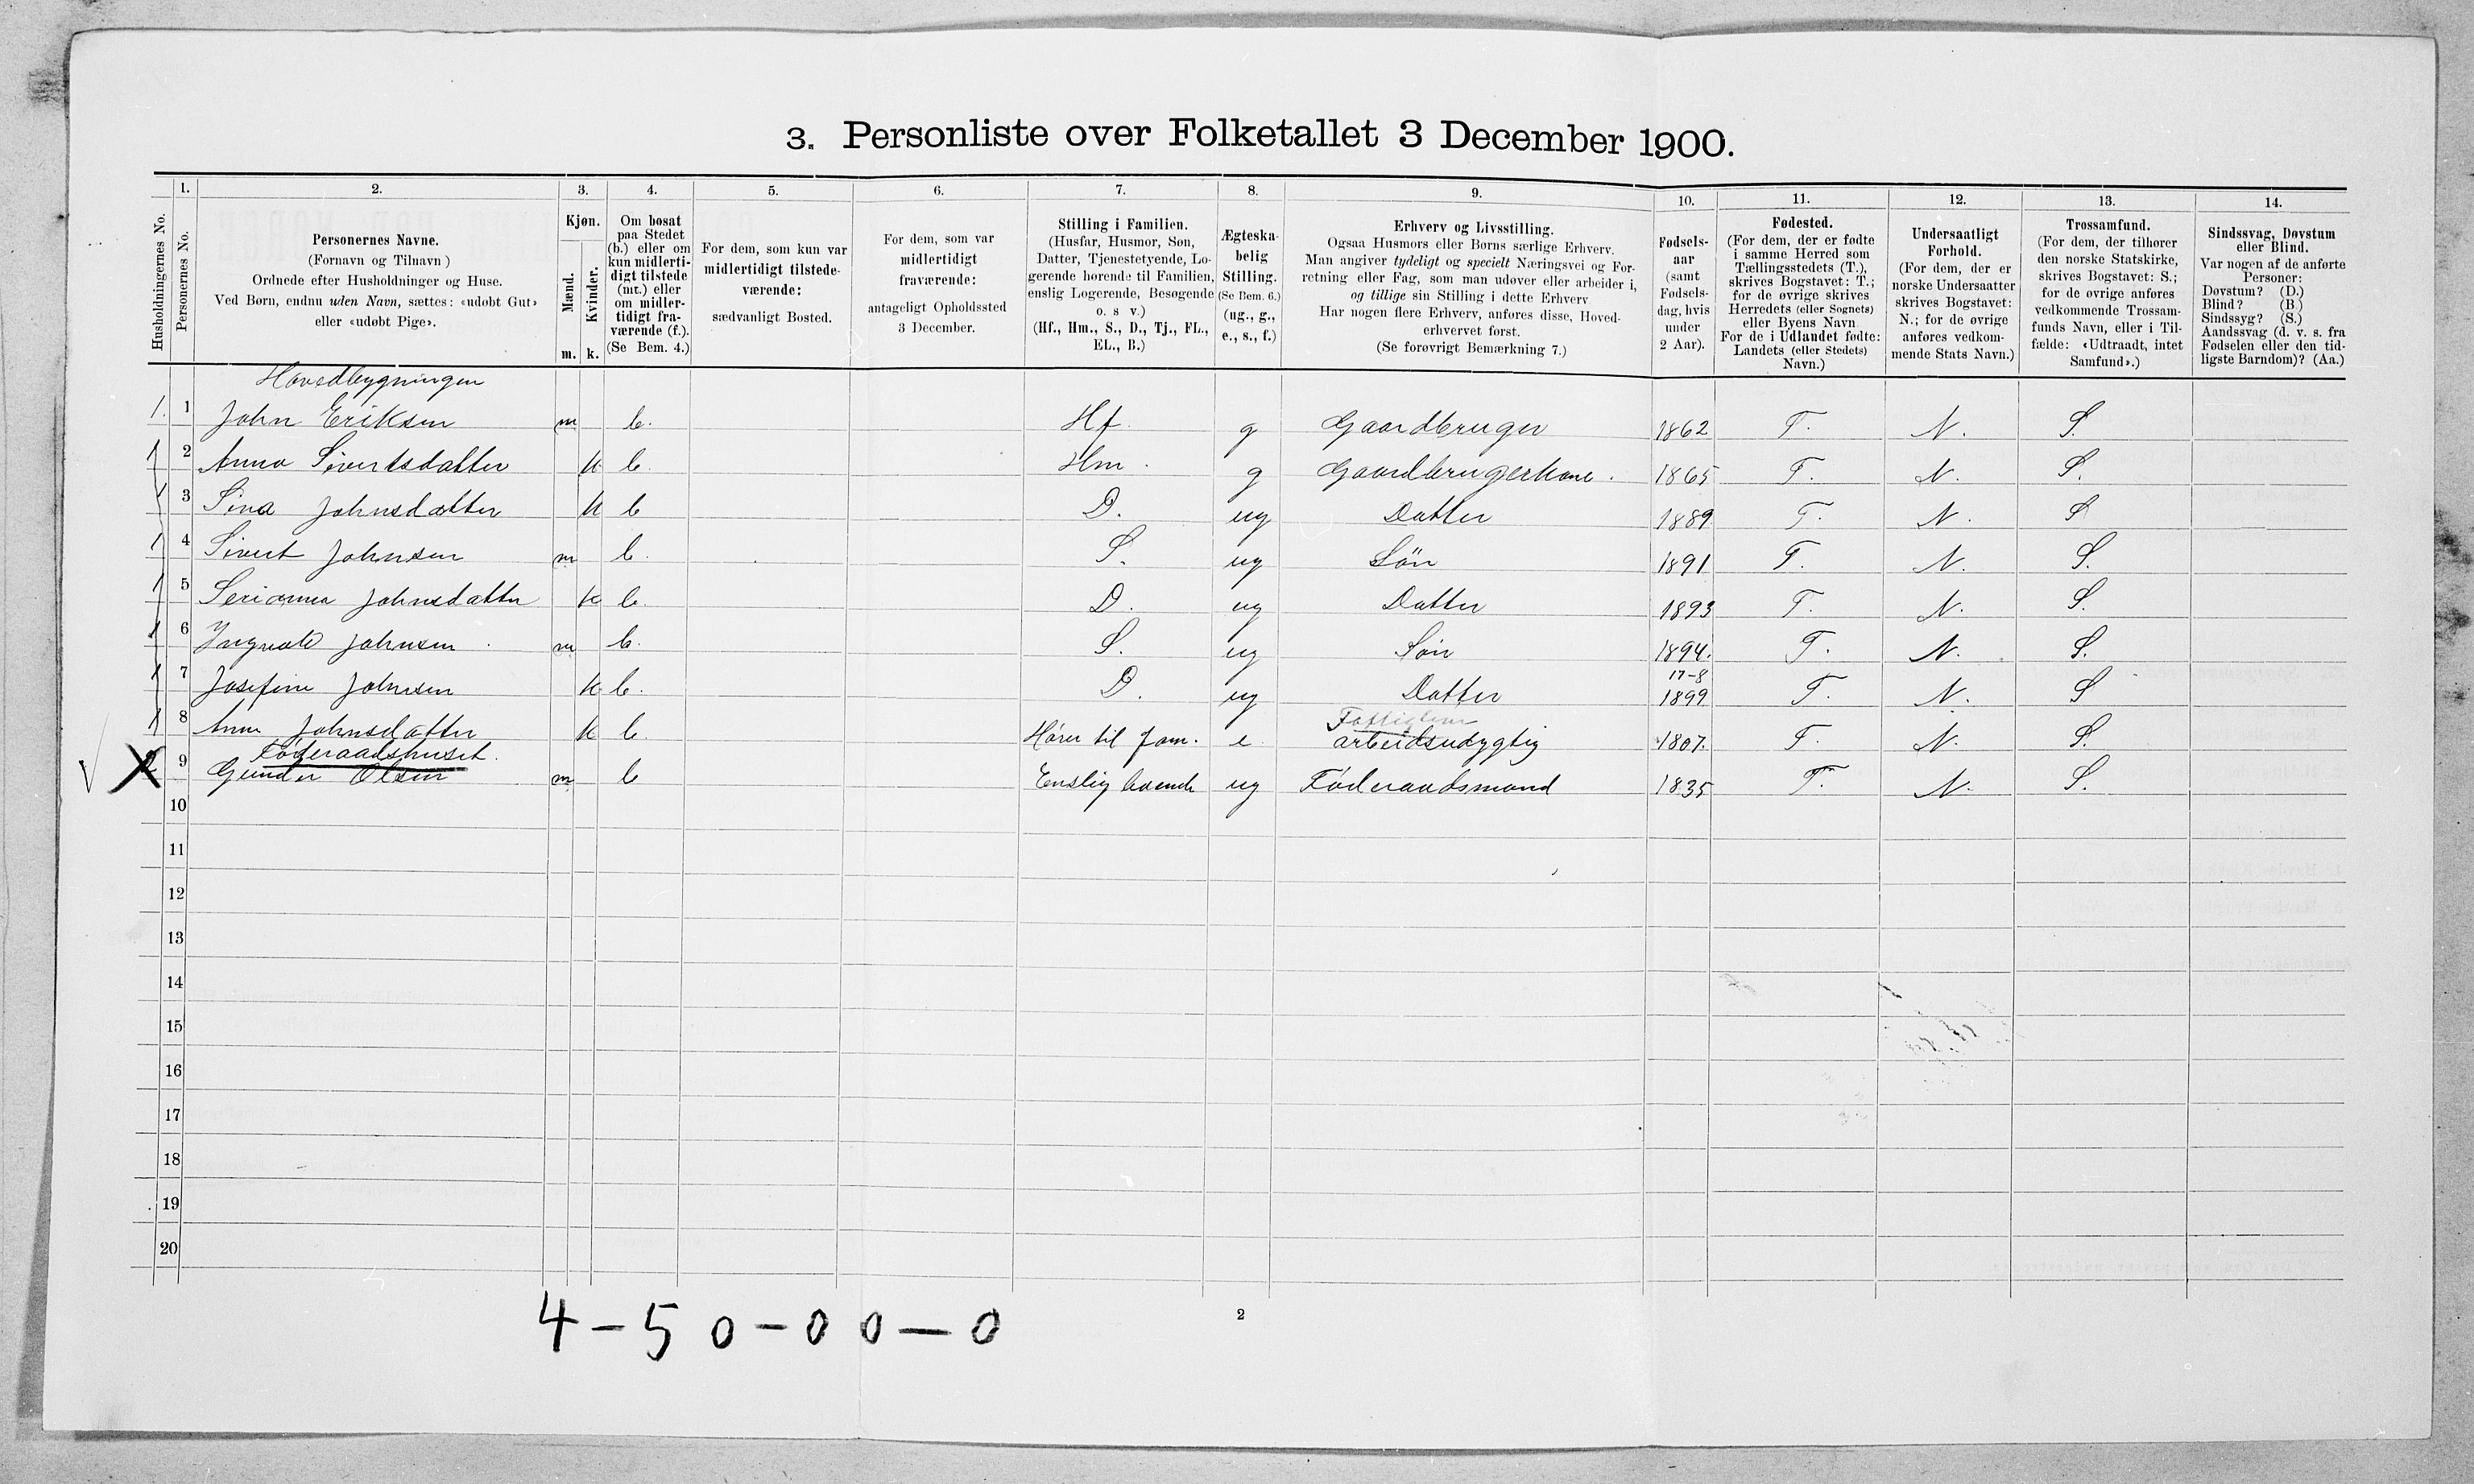 3. Personliste over Folketallet 3 December 1900.
1. 2. 3. 4. 5. 6. 7. 8. 9. 10. 11. 12. 13. 14.
Husholdningernes No.
Personernes No.
Personernes Navne.
(Fornavn og Tilnavn)
Ordnede efter Husholdninger og Huse.
Ved Børn, endnu uden Navn, sættes: «udøbt Gut»
eller «udøbt Pige».
Kjøn.
Mænd.
Kvinder.
m. k.
Om bosat
paa Stedet
(b.) eller om
kun midlerti-
digt tilstede
(mt.) eller
om midler-
tidigt fra-
værende (f.).
(Se Bem. 4.)
For dem, som kun var
midlertidigt tilstede-
værende:
sædvanligt Bosted.
For dem, som var
midlertidigt
fraværende:
antageligt Opholdssted
3 December.
Stilling i Familien.
(Husfar, Husmor, Søn,
Datter, Tjenestetyende, Lo-
gerende hørende til Familien,
enslig Logerende, Besøgende
o. s v.)
(Hf., Hm., S., D., Tj., FL.,
EL., B.)
Ægteska-
belig
Stilling.
(Se Bem. 6.)
(ug., g.,
e., s., f.)
Erhverv og Livsstilling.
Ogsaa Husmors eller Børns særlige Erhverv.
Man angiver tydeligt og specielt Næringsvei og For-
retning eller Fag, som man udøver eller arbeider i,
og tillige sin Stilling i dette Erhverv
Har nogen flere Erhverv, anføres disse, Hoved-
erhvervet først.
(Se forøvrigt Bemærkning 7.)
Fødsels-
aar
(samt
Fødsels-
dag, hvis
under
2 Aar).
Fødested.
(For dem, der er fødte
i samme Herred som
Tællingsstedets (T.),
skrives Bogstavet: T.;
for de øvrige skrives
Herredets (eller Sognets)
eller Byens Navn
For de i Udlandet fødte:
Landets (eller Stedets)
Navn.)
Undersaatligt
Forhold.
(For dem, der er
norske Undersaatter
skrives Bogstavet:
N.; for de øvrige
anføres vedkom-
mende Stats Navn.)
Trossamfund.
(For dem, der tilhører
den norske Statskirke,
skrives Bogstavet: S.;
for de øvrige anføres
vedkommende Trossam-
funds Navn, eller i Til-
fælde: «Udtraadt, intet
Samfund».)
Sindssvag, Døvstum
eller Blind.
Var nogen af de anførte
Personer:
Døvstum? (D.)
Blind? (B.)
Sindssyg? (S.)
Aandssvag (d. v. s. fra
Fødselen eller den tid-
ligste Barndom)? (Aa.)
Hovedbygningen
1. 1 John Eriksen m b. Hf. g Gaardbruger 1862 T. N. S.
1 2 Anna Sivertsdatter k b. Hm. g Gaardbrugerkone. 1865 T. N. S.
1 3 Sina Johnsdatter k b D. ug Datter 1889 T. N. S
1 4 Sivert Johnsen m b. S. ug Søn 1891 T. N. S.
1 5 Serianna Johnsdatter k b. D. ug Datter 1893 T. N. S.
1 6 Ingvald Johnsen m b. S. ug Søn 1894. T. N. S.
17-8
1 7 Josefine Johnsen k b. D. ug Datter 1899 T. N. S
Fattiglem
1 8 Anne Johnsdatter k b. Hører til fam. e arbeidsudygtig 1807. T. N. S.
Føderaadshuset.
X 9 Gunder Olsen m b Enslig boende ug Føderaadsmand 1835 T. N. S.
10
11
12
13
14
15
16
17
18
19
20
4 - 5 0 - 0 0 - 0
2